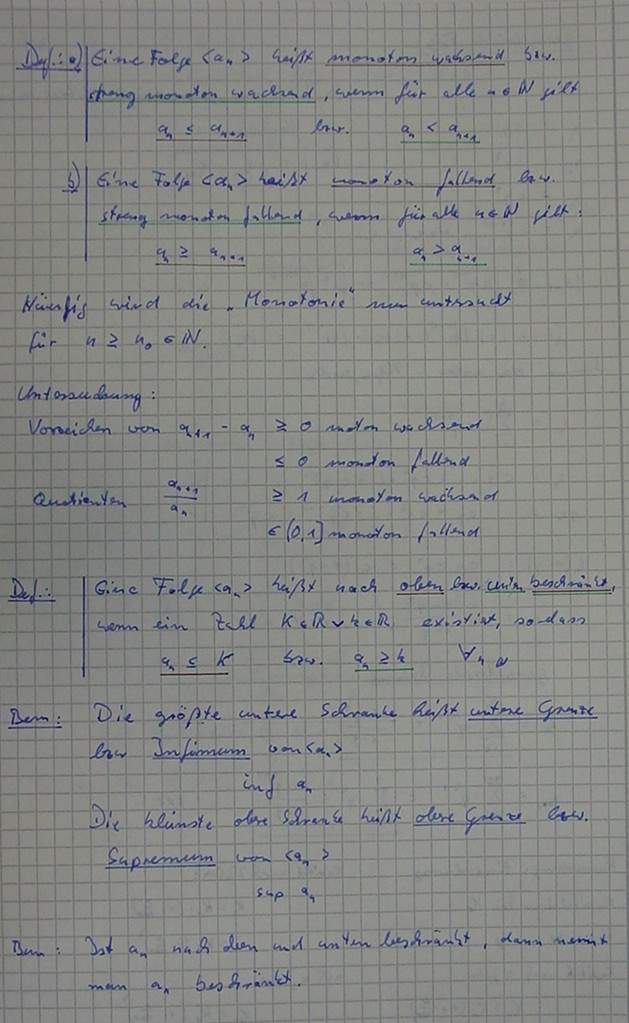 Def.: a) Eine Folge <an> heißt monoton wachsend bzw.
streng monoton wachsend, wenn für alle n ∈ ℕ gilt
an ≤ an+1 bzw. an < an+1
b) Eine Folge <an> heißt monoton fallend bzw.
streng monoton fallend, wenn für alle n ∈ ℕ gilt:
an ≥ an+1 an > an+1
Häufig wird die „Monotonie" nur untersucht
für n ≥ n0 ∈ ℕ.
Untersuchung:
Vorzeichen von an+1 - an ≥ 0 moton wachsend
≤ 0 monoton fallend
Quotienten an+1/an ≥ 1 monoton wachsend
∈ (0,1] monoton fallend
Def.: Eine Folge <an> heißt nach oben bzw. unten beschränkt,
wenn ein Zahl K ∈ ℝ ∨ k ∈ ℝ existiert, so dass
an ≤ K bzw. an ≥ k ∀n
Bem: Die größte untere Schranke heißt untere Grenze
bzw Infimum von <an>
inf an
Die kleinste obere Schranke heißt obere Grenze bzw.
Supremum von <an>
sup an
Bem: Ist an nach oben und unten beschränkt, dann nennt
man an beschränkt.